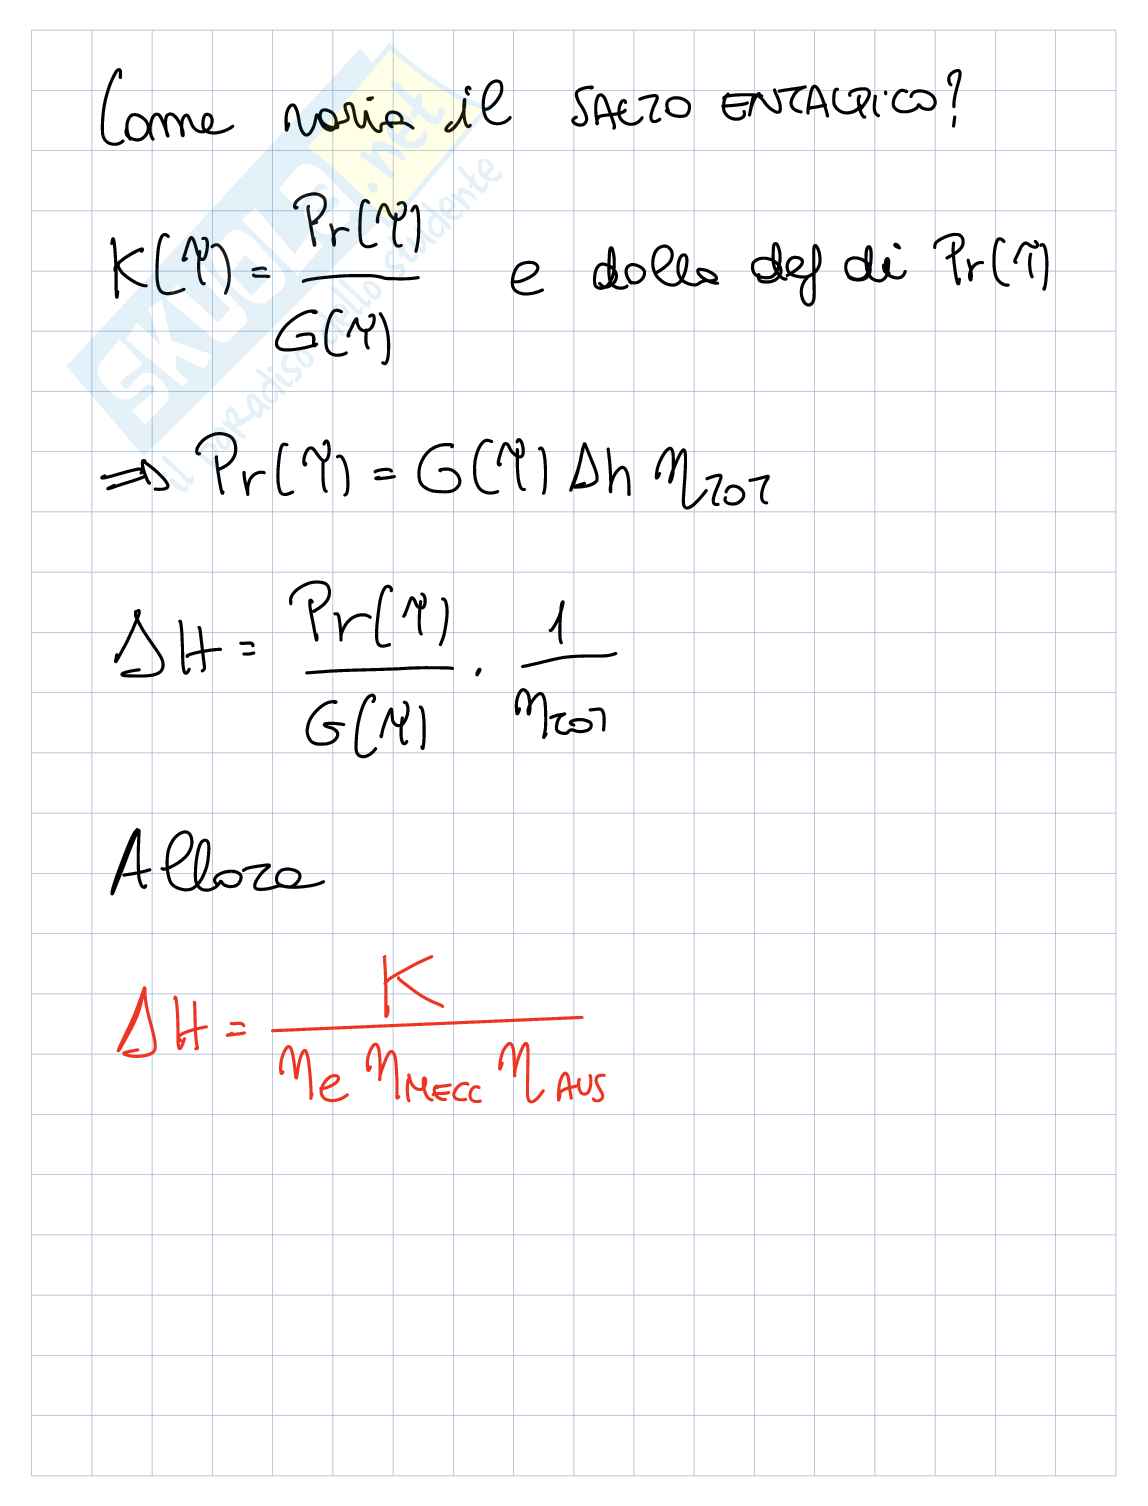 Come varia il SALTO ENTALPICO?
K(τ) = Pr(τ) / G(τ) e dalla def di Pr(τ)
⇒ Pr(τ) = G(τ) Δh η_TOT
ΔH = Pr(τ) / G(τ) · 1 / η_TOT
Allora
ΔH = K / η_e η_MECC η_AUS
SKUOLA.net
il paradiso dello studente